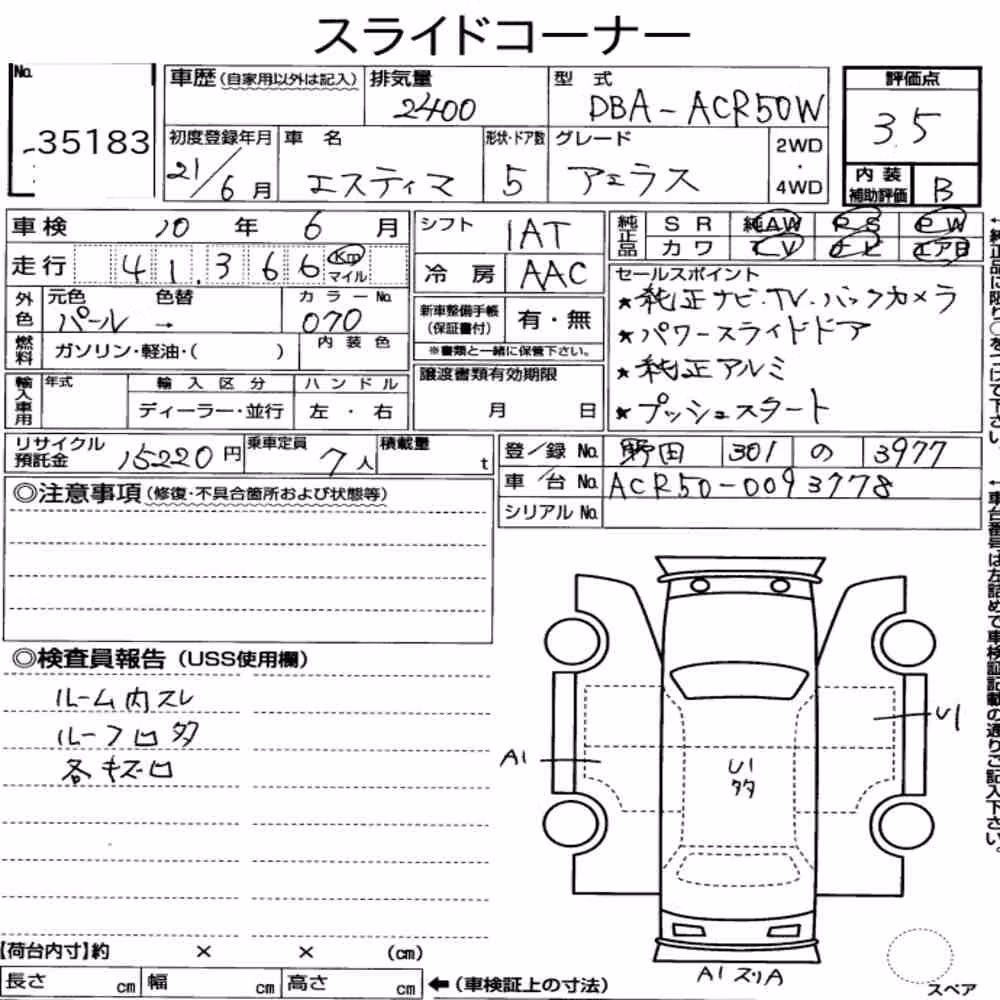 スライドコーナー
No. 35183
車歴 (自家用以外は記入) 排気量 2400 型式 DBA-ACR50W
初度登録年月 21/6月 車名 エスティマ 形状・ドア数 5 グレード アエラス 2WD・4WD
評価点 3.5
内装補助評価 B
車検 10年 6月
走行 41,366 Km マイル
外色 元色 パール 色替 → カラーNo. 070
燃料 ガソリン・軽油・( ) 内装色
輸入車用 年式 輸入区分 ディーラー・並行 ハンドル 左・右
シフト IAT
冷房 AAC
新車整備手帳(保証書付) 有・無
※書類と一緒に保管下さい。
譲渡書類有効期限
月 日
純正品 SR 純AW PS PW
カワ TV ナビ エアB
セールスポイント
★純正ナビ・TV.バックカメラ
★パワースライドドア
★純正アルミ
★プッシュスタート
リサイクル預託金 15220円 乗車定員 7人 積載量 t
登/録No. 野田 301 の 3977
車/台No. ACR50-0093778
シリアルNo.
◎注意事項(修復・不具合箇所および状態等)
◎検査員報告(USS使用欄)
ルーム内スレ
ルーフ凹多
各キズ凹
A1
U1
U1
多
A1スリA
スペア
【荷台内寸】約 × × (cm)
長さ cm 幅 cm 高さ cm ←(車検証上の寸法)
←純正品に限り○をつけて下さい。
←車台番号は左詰めで車検証記載の通りご記入下さい。